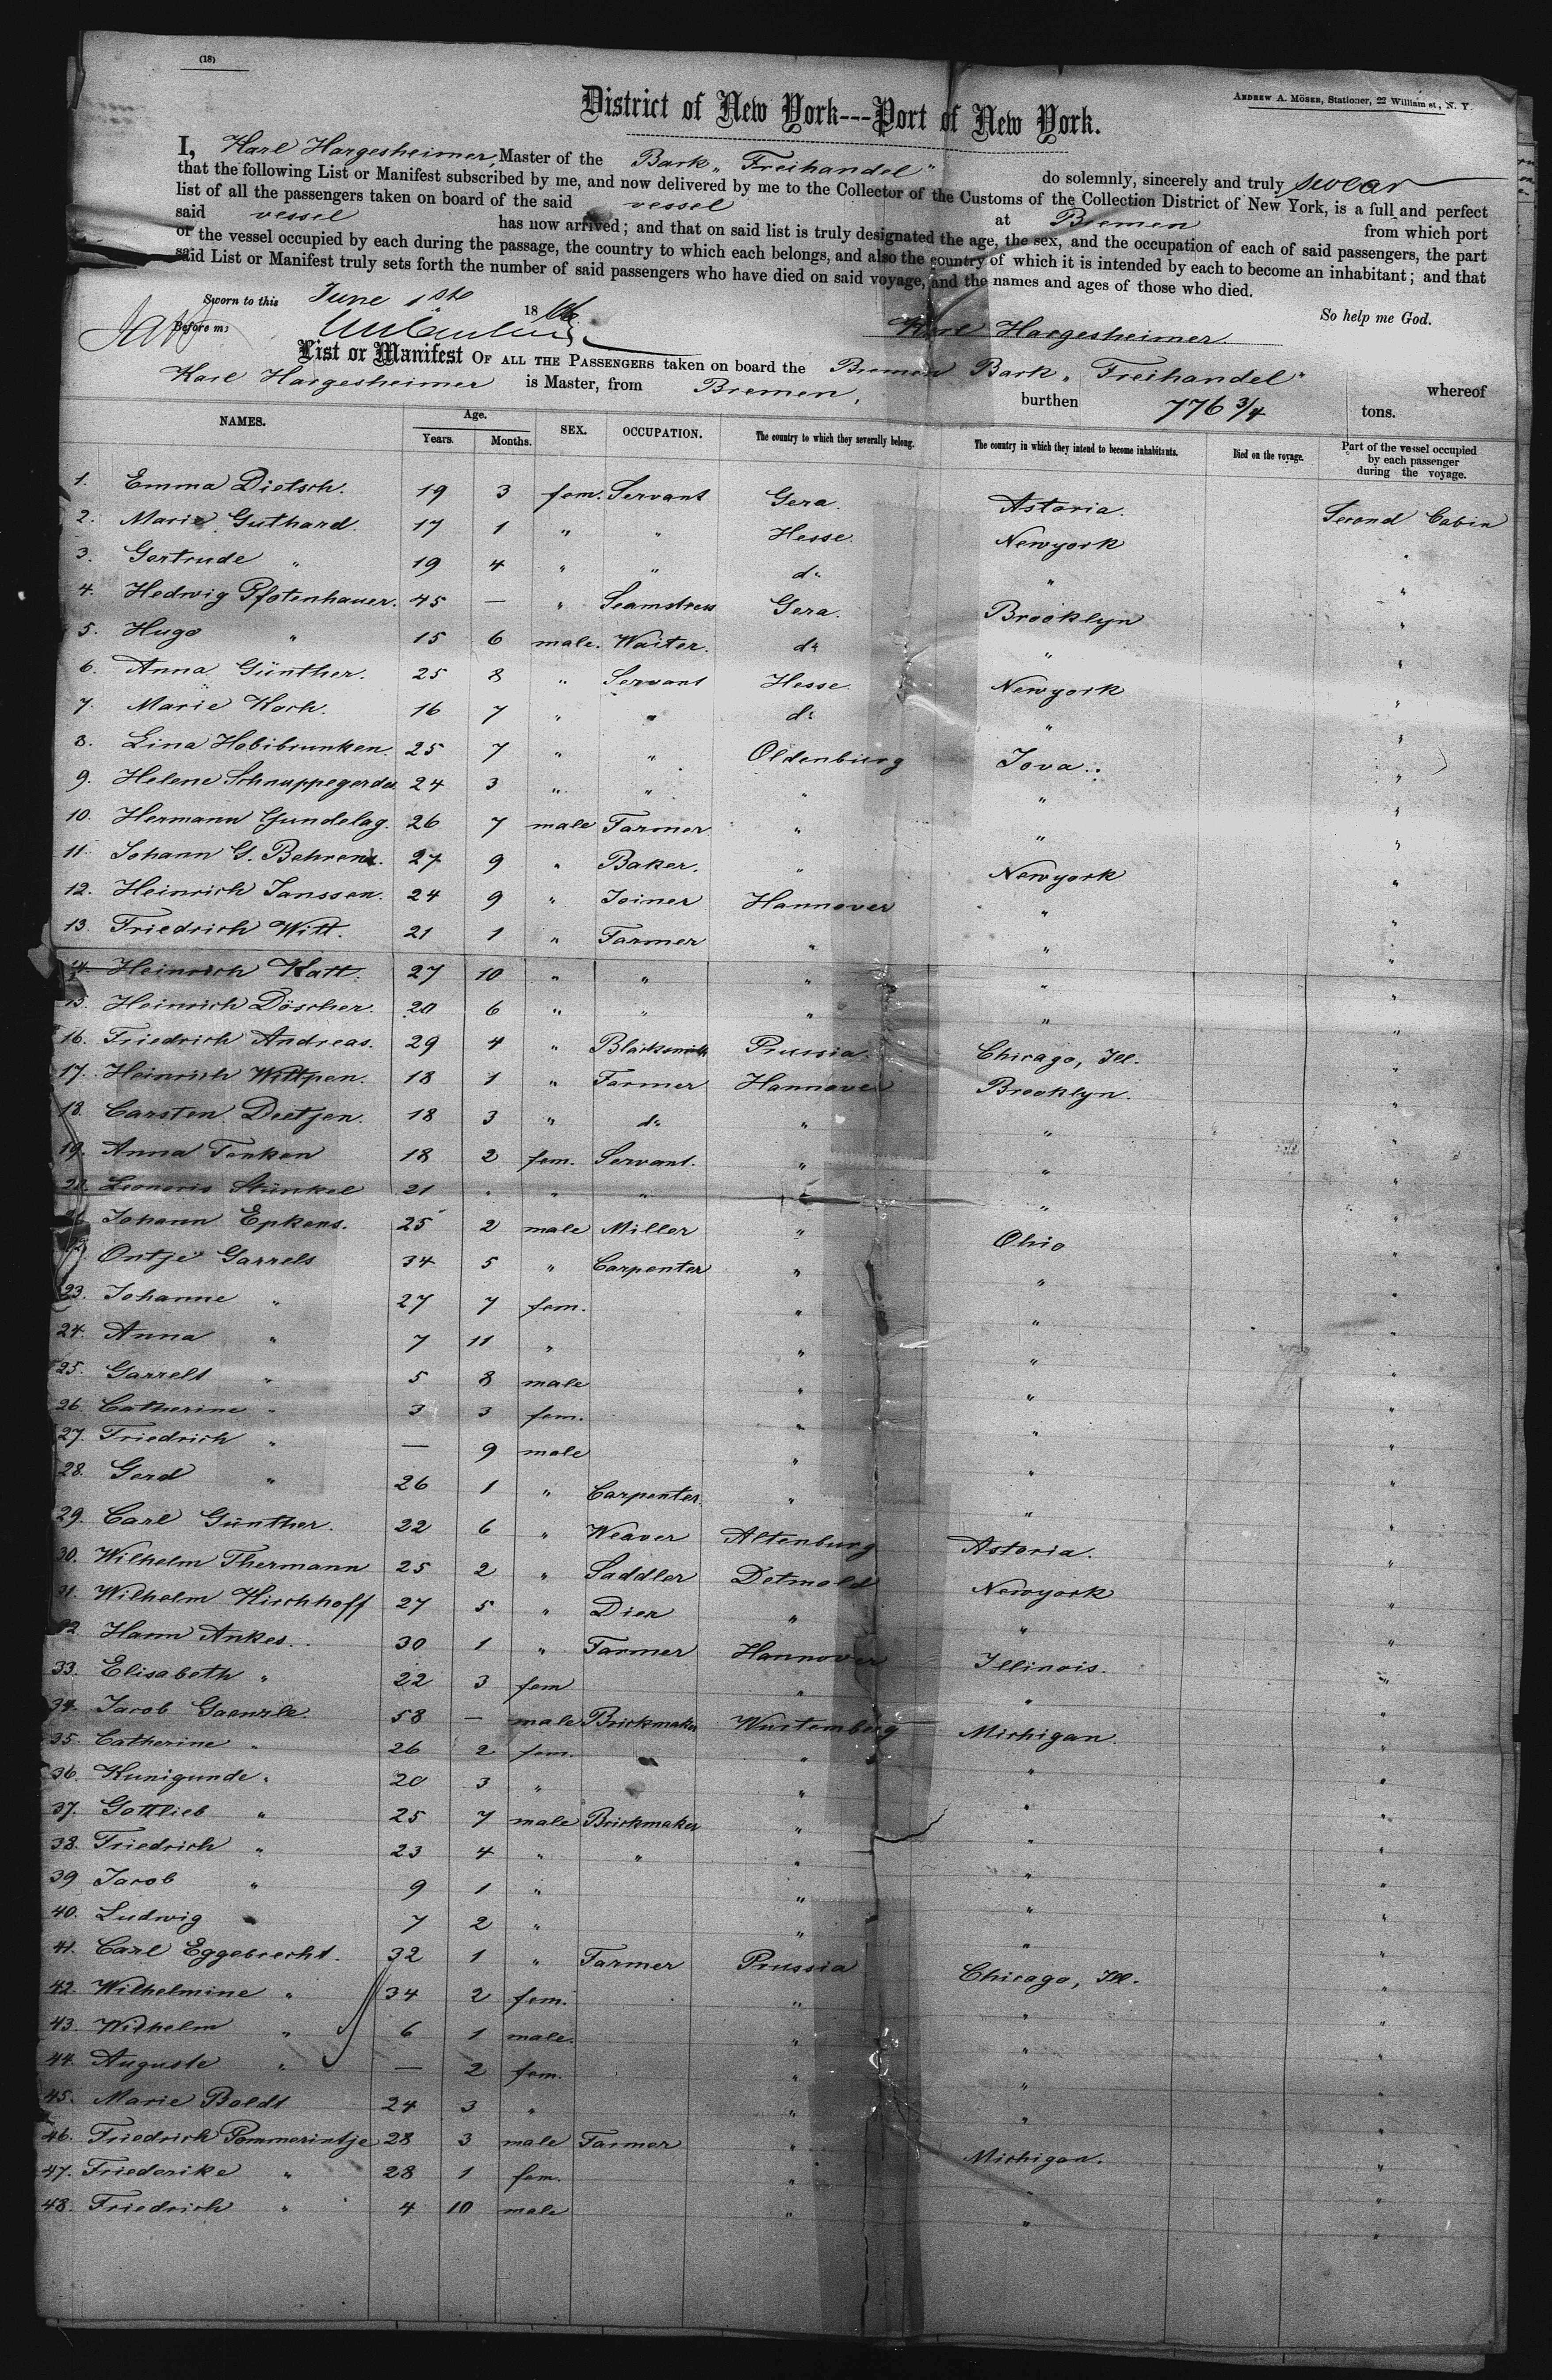 (18)
Andrew A. Möser, Stationer, 22 William st., N. Y.
District of New York---Port of New York.
I, Karl Hargesheimer, Master of the Bark „Freihandel" do solemnly, sincerely and truly swear
that the following List or Manifest subscribed by me, and now delivered by me to the Collector of the Customs of the Collection District of New York, is a full and perfect
list of all the passengers taken on board of the said vessel at Bremen from which port
said vessel has now arrived; and that on said list is truly designated the age, the sex, and the occupation of each of said passengers, the part
of the vessel occupied by each during the passage, the country to which each belongs, and also the country of which it is intended by each to become an inhabitant; and that
said List or Manifest truly sets forth the number of said passengers who have died on said voyage, and the names and ages of those who died.
Sworn to this June 1st 18 So help me God.
Before me Karl Hargesheimer
List or Manifest OF ALL THE PASSENGERS taken on board the Bremen Bark „Freihandel" whereof
Karl Hargesheimer is Master, from Bremen, burthen 776 3/4 tons.
NAMES. Age. Years. Months. SEX. OCCUPATION. The country to which they severally belong. The country in which they intend to become inhabitants. Died on the voyage. Part of the vessel occupied by each passenger during the voyage.
1. Emma Dietsch. 19 3 fem. Servant Gera. Astoria. Second Cabin
2. Marie Guthard. 17 1 " " Hesse. Newyork "
3. Gertrude " 19 4 " " do " "
4. Hedwig Pfotenhauer. 45 — " Seamstress Gera. Brooklyn "
5. Hugo " 15 6 male. Waiter. do " "
6. Anna Günther. 25 8 " Servant Hesse. Newyork "
7. Marie Koch. 16 7 " " do " "
8. Lina Hobibrunken. 25 7 " " Oldenburg Iova. "
9. Helene Schnuppegerdes 24 3 " " " " "
10. Hermann Gundelag. 26 7 male Farmer " " "
11. Johann G. Behrens. 27 9 " Baker. " Newyork "
12. Heinrich Janssen. 24 9 " Joiner Hannover " "
13. Friedrich Witt. 21 1 " Farmer " " "
14. Heinrich Katt. 27 10 " " " " "
15. Heinrich Döscher. 20 6 " " " " "
16. Friedrich Andreas. 29 4 " Blacksmith Prussia Chicago, Ill. "
17. Heinrich Wittpen. 18 1 " Farmer Hannover Brooklyn. "
18. Carsten Deetjen. 18 3 " do " " "
19. Anna Tenken 18 2 fem. Servant. " " "
20. Leonoris Stünkel 21 " " " " " "
21. Johann Epkens. 25 2 male Miller " Ohio "
22. Ontje Garrels 34 5 " Carpenter " " "
23. Johanne " 27 7 fem. " " "
24. Anna " 7 11 " " " "
25. Garrelt " 5 8 male " " "
26. Catherine " 3 3 fem. " " "
27. Friedrich " — 9 male " " "
28. Gerd " 26 1 " Carpenter. " " "
29. Carl Günther. 22 6 " Weaver Altenburg Astoria. "
30. Wilhelm Thermann 25 2 " Saddler Detmold Newyork "
31. Wilhelm Kirchhoff 27 5 " Dier " " "
32 Hann Ankes. 30 1 " Farmer Hannover Illinois. "
33. Elisabeth " 22 3 fem " " "
34. Jacob Gaenzle 58 — male Brickmaker Wurtemberg Michigan. "
35. Catherine " 26 2 fem. " " "
36. Kunigunde " 20 3 " " " "
37. Gottlieb " 25 7 male Brickmaker " " "
38. Friedrich " 23 4 " " " " "
39 Jacob " 9 1 " " " "
40. Ludwig " 7 2 " " " "
41. Carl Eggebrecht. 32 1 " Farmer Prussia Chicago, Ill. "
42. Wilhelmine " 34 2 fem. " " "
43. Wilhelm " 6 1 male. " " "
44. Auguste " — 2 fem. " " "
45. Marie Boldt 24 3 " " " "
46. Friedrich Pommerintje 28 3 male Farmer " Michigan. "
47. Friederike " 28 1 fem. " " "
48. Friedrich " 4 10 male " " "